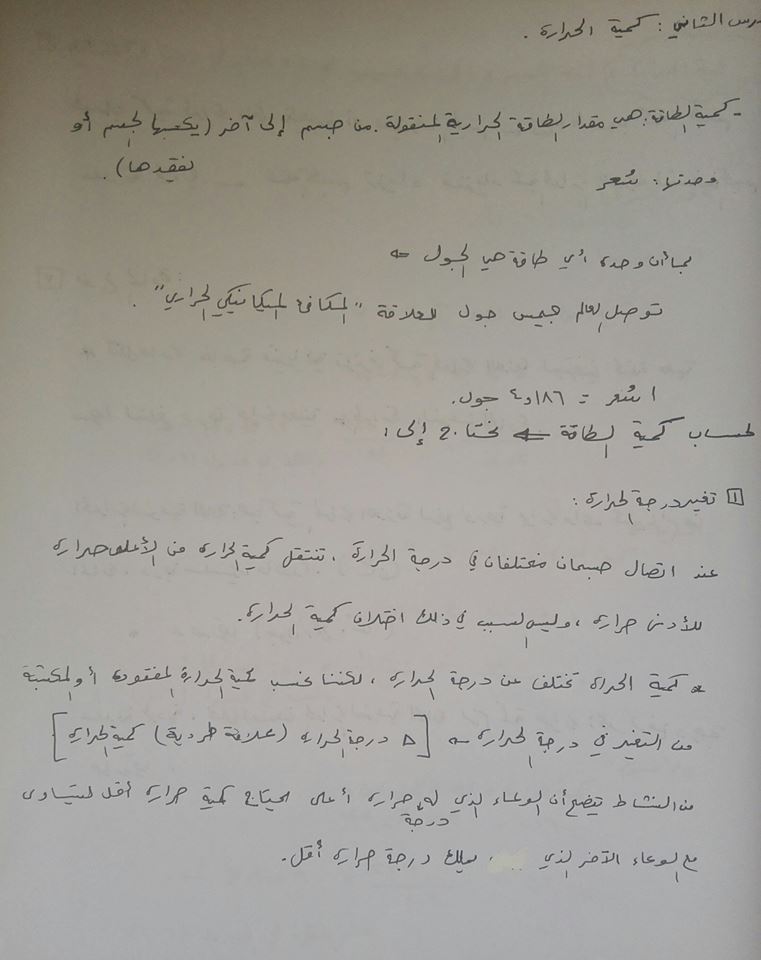 درس الثاني : كمية الحرارة .
- كمية الطاقة : هي مقدار الطاقة الحرارية المنقولة من جسم إلى آخر (يكسبها الجسم أو
يفقدها) .
وحدتها : سُعر
بما أن وحدة أي طاقة هي الجول ⇐
توصل العالم جيمس جول للعلاقة " المكافئ الميكانيكي الحراري " .
١ سُعر = ٤٫١٨٦ جول.
لحساب كمية الطاقة ⇐ نحتاج إلى :
1 تغير درجة الحرارة :
عند اتصال جسمان مختلفان في درجة الحرارة ، تنتقل كمية الحرارة من الأعلى حرارة
للأدنى حرارة ، وليس السبب في ذلك اختلاف كمية الحرارة.
* كمية الحرارة تختلف عن درجة الحرارة ، لكننا نحسب كمية الحرارة المفقودة أو المكتسبة
من التغير في درجة الحرارة ⇐ [ Δ درجة الحرارة (علاقة طردية) كمية الحرارة ]
من النشاط يتضح أن الوعاء الذي له درجة حرارة أعلى يحتاج كمية حرارة أقل ليتساوى
مع الوعاء الآخر الذي يملك درجة حرارة أقل .